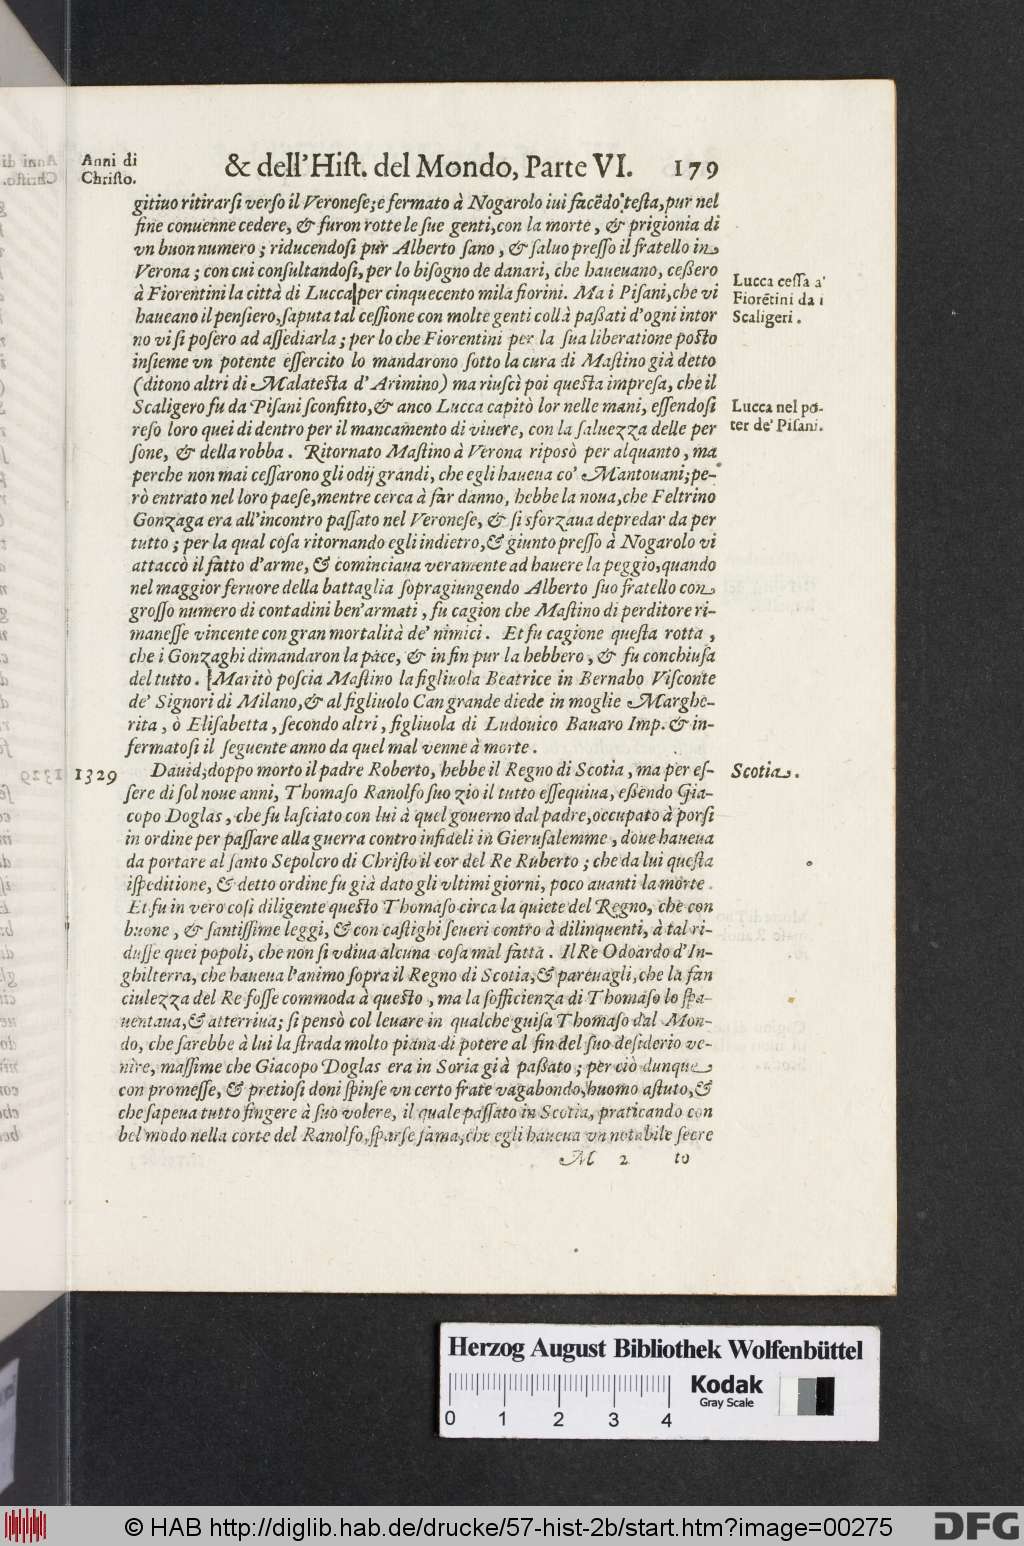 Anni di
Christo.
& dell'Hist. del Mondo, Parte VI. 179
gitiuo ritirarsi verso il Veronese; e fermato à Nogarolo iui facẽdo testa, pur nel
fine conuenne cedere, & furon rotte le sue genti, con la morte, & prigionia di
vn buon numero; riducendosi pur Alberto sano, & saluo presso il fratello in
Verona; con cui consultandosi, per lo bisogno de danari, che haueuano, cessero
à Fiorentini la città di Lucca per cinquecento mila fiorini. Ma i Pisani, che vi
haueano il pensiero, saputa tal cessione con molte genti collà passati d'ogni intor
no vi si posero ad assediarla; per lo che Fiorentini per la sua liberatione posto
insieme vn potente essercito lo mandarono sotto la cura di Mastino già detto
(ditono altri di Malatesta d'Arimino) ma riuscì poi questa impresa, che il
Scaligero fu da Pisani sconfitto, & anco Lucca capitò lor nelle mani, essendosi
reso loro quei di dentro per il mancamento di viuere, con la saluezza delle per
sone, & della robba. Ritornato Mastino à Verona riposò per alquanto, ma
perche non mai cessarono gli odij grandi, che egli haueua co' Mantouani; pe-
rò entrato nel loro paese, mentre cerca à far danno, hebbe la noua, che Feltrino
Gonzaga era all'incontro passato nel Veronese, & si sforzaua depredar da per
tutto; per la qual cosa ritornando egli indietro, & giunto presso à Nogarolo vi
attaccò il fatto d'arme, & cominciaua veramente ad hauere la peggio, quando
nel maggior feruore della battaglia sopragiungendo Alberto suo fratello con
grosso numero di contadini ben'armati, fu cagion che Mastino di perditore ri-
manesse vincente con gran mortalità de' nimici. Et fu cagione questa rotta,
che i Gonzaghi dimandaron la pace, & in fin pur la hebbero, & fu conchiusa
del tutto. Maritò poscia Mastino la figliuola Beatrice in Bernabo Visconte
de' Signori di Milano, & al figliuolo Can grande diede in moglie Marghe-
rita, ò Elisabetta, secondo altri, figliuola di Ludouico Bauaro Imp. & in-
fermatosi il seguente anno da quel mal venne à morte.
Lucca cessa a'
Fiorẽtini da i
Scaligeri.
Lucca nel po-
ter de' Pisani.
1329
Dauid, doppo morto il padre Roberto, hebbe il Regno di Scotia, ma per es-
sere di sol noue anni, Thomaso Ranolfo suo zio il tutto essequiua, essendo Gia-
copo Doglas, che fu lasciato con lui à quel gouerno dal padre, occupato à porsi
in ordine per passare alla guerra contro infideli in Gierusalemme, doue haueua
da portare al santo Sepolcro di Christo il cor del Re Ruberto; che da lui questa
ispeditione, & detto ordine fu già dato gli vltimi giorni, poco auanti la morte.
Et fu in vero cosi diligente questo Thomaso circa la quiete del Regno, che con
buone, & santissime leggi, & con castighi seueri contro à dilinquenti, à tal ri-
dusse quei popoli, che non si vdiua alcuna cosa mal fatta. Il Re Odoardo d'In-
ghilterra, che haueua l'animo sopra il Regno di Scotia, & pareuagli, che la fan
ciulezza del Re fosse commoda à questo, ma la sofficienza di Thomaso lo spa-
uentaua, & atterriua; si pensò col leuare in qualche guisa Thomaso dal Mon-
do, che sarebbe à lui la strada molto piana di potere al fin del suo desiderio ve-
nire, massime che Giacopo Doglas era in Soria già passato; per ciò dunque
con promesse, & pretiosi doni spinse vn certo frate vagabondo, huomo astuto, &
che sapeua tutto fingere à suo volere, il quale passato in Scotia, praticando con
bel modo nella corte del Ranolfo, sparse fama, che egli haueua vn notabile secre
Scotia.
M 2 to
Herzog August Bibliothek Wolfenbüttel
0 1 2 3 4
Kodak
Gray Scale
© HAB http://diglib.hab.de/drucke/57-hist-2b/start.htm?image=00275
DFG